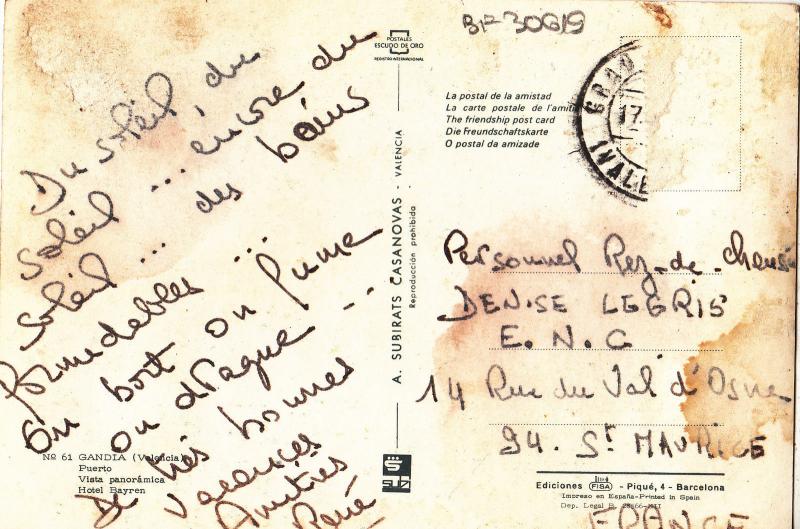 Du soleil, du
soleil ... encore du
soleil ... des bains
formidables ...
On boit on fume
on drague ...
De très bonnes
vacances
Amitiés
René
Nº 61 GANDIA (Valencia)
Puerto
Vista panorámica
Hotel Bayren
POSTALES
ESCUDO DE ORO
REGISTRO INTERNACIONAL
A. SUBIRATS CASANOVAS - VALENCIA
Reproducción prohibida
BF 30619
La postal de la amistad
La carte postale de l'amitié
The friendship post card
Die Freundschaftskarte
O postal da amizade
17.
(VALE
Personnel Rez-de-Chaussé
DENISE LEGRIS
E. N. C
14 Rue du Val d'Osne
94. St MAURICE
FRANCE
Ediciones FISA - Piqué, 4 - Barcelona
Impreso en España-Printed in Spain
Dep. Legal B.